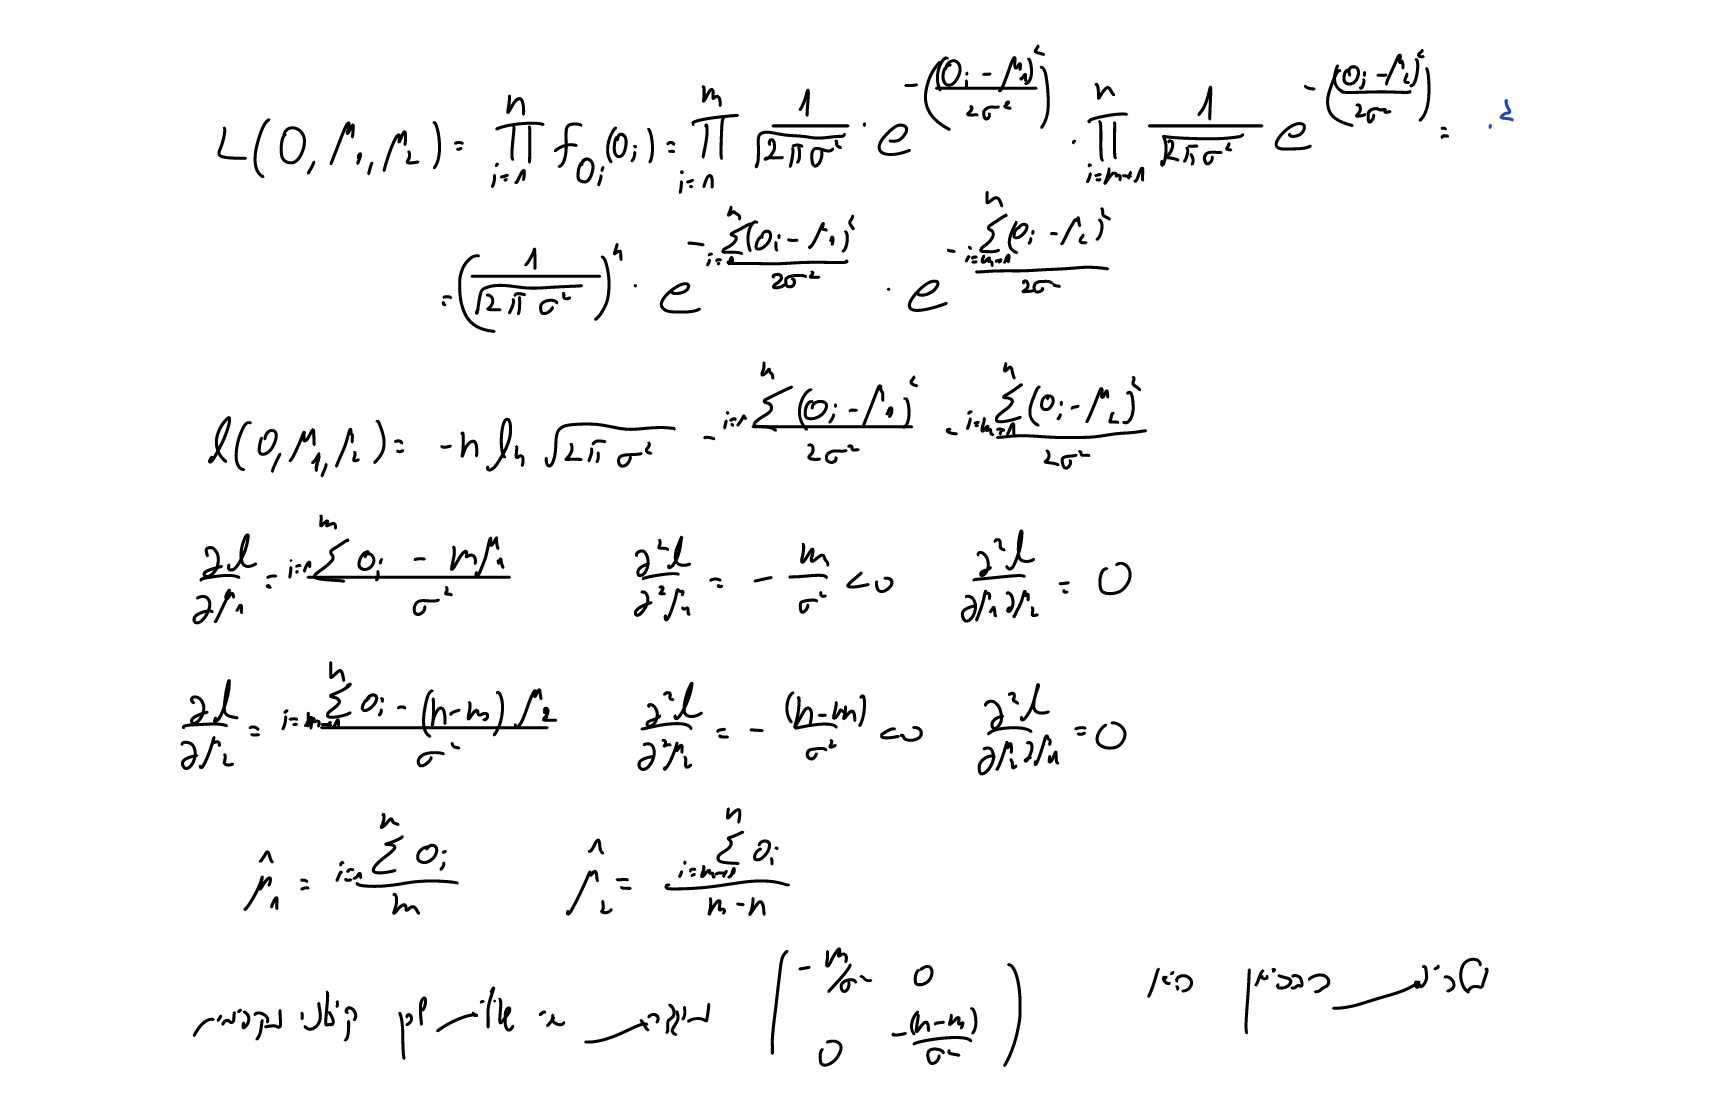 .2
L(O, μ₁, μ₂) = ∏_{i=1}^{n} f_{O_i}(O_i) = ∏_{i=1}^{m} 1/√(2πσ²) · e^{-((O_i - μ₁)²/2σ²)} · ∏_{i=m+1}^{n} 1/√(2πσ²) e^{-((O_i - μ₂)²/2σ²)} =
= (1/√(2πσ²))^n · e^{-∑_{i=1}^{n}(O_i - μ₁)²/2σ²} · e^{-∑_{i=m+1}^{n}(O_i - μ₂)²/2σ}
l(O, μ₁, μ₂) = -n ln √(2πσ²) - ∑_{i=1}^{n}(O_i - μ₁)²/2σ² - ∑_{i=m+1}^{n}(O_i - μ₂)²/2σ²
∂l/∂μ₁ = (∑_{i=1}^{m} O_i - mμ₁)/σ² ∂²l/∂²μ₁ = - m/σ² < 0 ∂²l/∂μ₁∂μ₂ = 0
∂l/∂μ₂ = (∑_{i=m+1}^{n} O_i - (n-m)μ₂)/σ² ∂²l/∂²μ₂ = - (n-m)/σ² < 0 ∂²l/∂μ₂∂μ₁ = 0
μ̂₁ = ∑_{i=1}^{n} O_i / m μ̂₂ = ∑_{i=m+1}^{n} O_i / m-n
מטריצת ההסיאן היא ( -m/σ² 0 ; 0 -(n-m)/σ² ) לכן